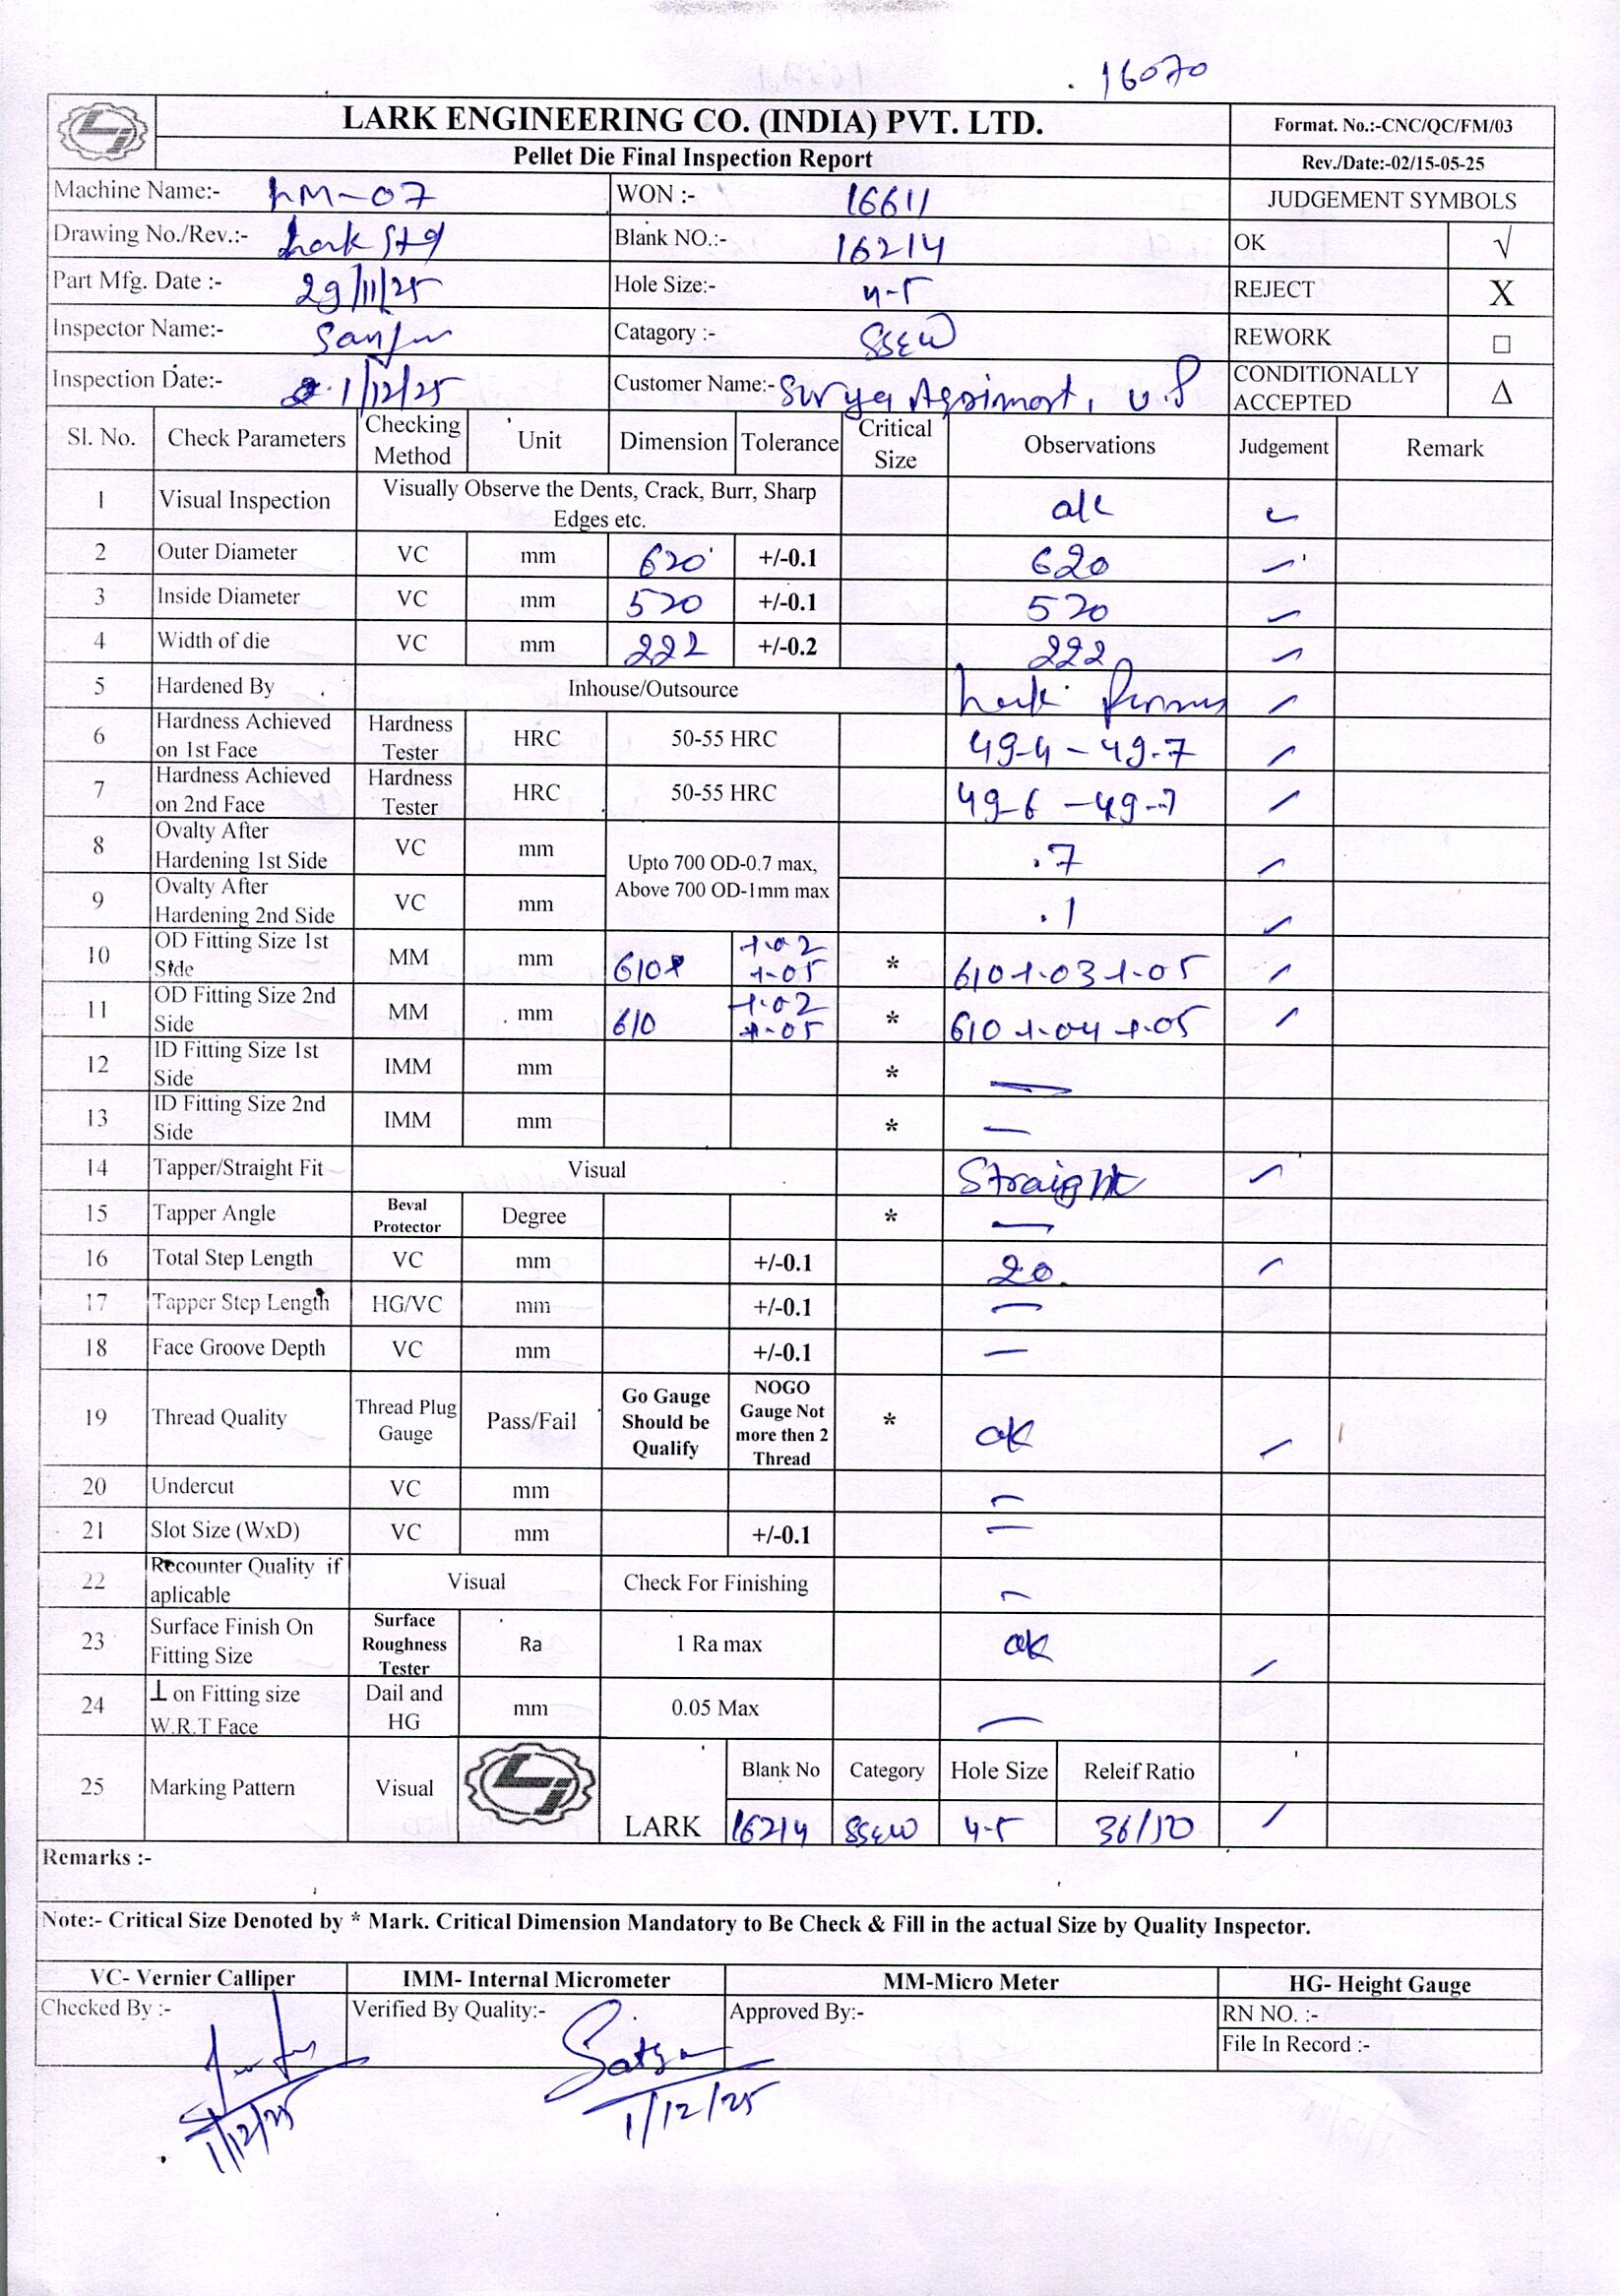 16070
LARK ENGINEERING CO. (INDIA) PVT. LTD.
Format. No.:-CNC/QC/FM/03
Pellet Die Final Inspection Report
Rev./Date:-02/15-05-25
Machine Name:- LM-07 WON :- 16611 JUDGEMENT SYMBOLS
Drawing No./Rev.:- Lark Std Blank NO.:- 16214 OK √
Part Mfg. Date :- 29/11/25 Hole Size:- 4-5 REJECT X
Inspector Name:- Sanju Catagory :- SSEW REWORK □
Inspection Date:- 1/12/25 Customer Name:- Surya Agrimart, U.P CONDITIONALLY ACCEPTED Δ
Sl. No. Check Parameters Checking Method Unit Dimension Tolerance Critical Size Observations Judgement Remark
1 Visual Inspection Visually Observe the Dents, Crack, Burr, Sharp Edges etc. ok
2 Outer Diameter VC mm 620 +/-0.1 620
3 Inside Diameter VC mm 520 +/-0.1 520
4 Width of die VC mm 222 +/-0.2 222
5 Hardened By Inhouse/Outsource Lark
6 Hardness Achieved on 1st Face Hardness Tester HRC 50-55 HRC 49-4 – 49.7
7 Hardness Achieved on 2nd Face Hardness Tester HRC 50-55 HRC 49-6 – 49.7
8 Ovalty After Hardening 1st Side VC mm Upto 700 OD-0.7 max, Above 700 OD-1mm max .7
9 Ovalty After Hardening 2nd Side VC mm .1
10 OD Fitting Size 1st Side MM mm 610 +.02 +.05 * 610 +.03 +.05
11 OD Fitting Size 2nd Side MM mm 610 +.02 +.05 * 610 +.04 +.05
12 ID Fitting Size 1st Side IMM mm * —
13 ID Fitting Size 2nd Side IMM mm * —
14 Tapper/Straight Fit Visual Straight
15 Tapper Angle Beval Protector Degree * —
16 Total Step Length VC mm +/-0.1 20
17 Tapper Step Length HG/VC mm +/-0.1 —
18 Face Groove Depth VC mm +/-0.1 —
19 Thread Quality Thread Plug Gauge Pass/Fail Go Gauge Should be Qualify NOGO Gauge Not more then 2 Thread * ok
20 Undercut VC mm —
21 Slot Size (WxD) VC mm +/-0.1 —
22 Recounter Quality if aplicable Visual Check For Finishing —
23 Surface Finish On Fitting Size Surface Roughness Tester Ra 1 Ra max ok
24 ⊥ on Fitting size W.R.T Face Dail and HG mm 0.05 Max —
25 Marking Pattern Visual LARK Blank No Category Hole Size Releif Ratio
16214 SSEW 4-5 36/10
Remarks :-
Note:- Critical Size Denoted by * Mark. Critical Dimension Mandatory to Be Check & Fill in the actual Size by Quality Inspector.
VC- Vernier Calliper IMM- Internal Micrometer MM-Micro Meter HG- Height Gauge
Checked By :- Verified By Quality:- Approved By:- RN NO. :-
File In Record :-
Satya
1/12/25 1/12/25